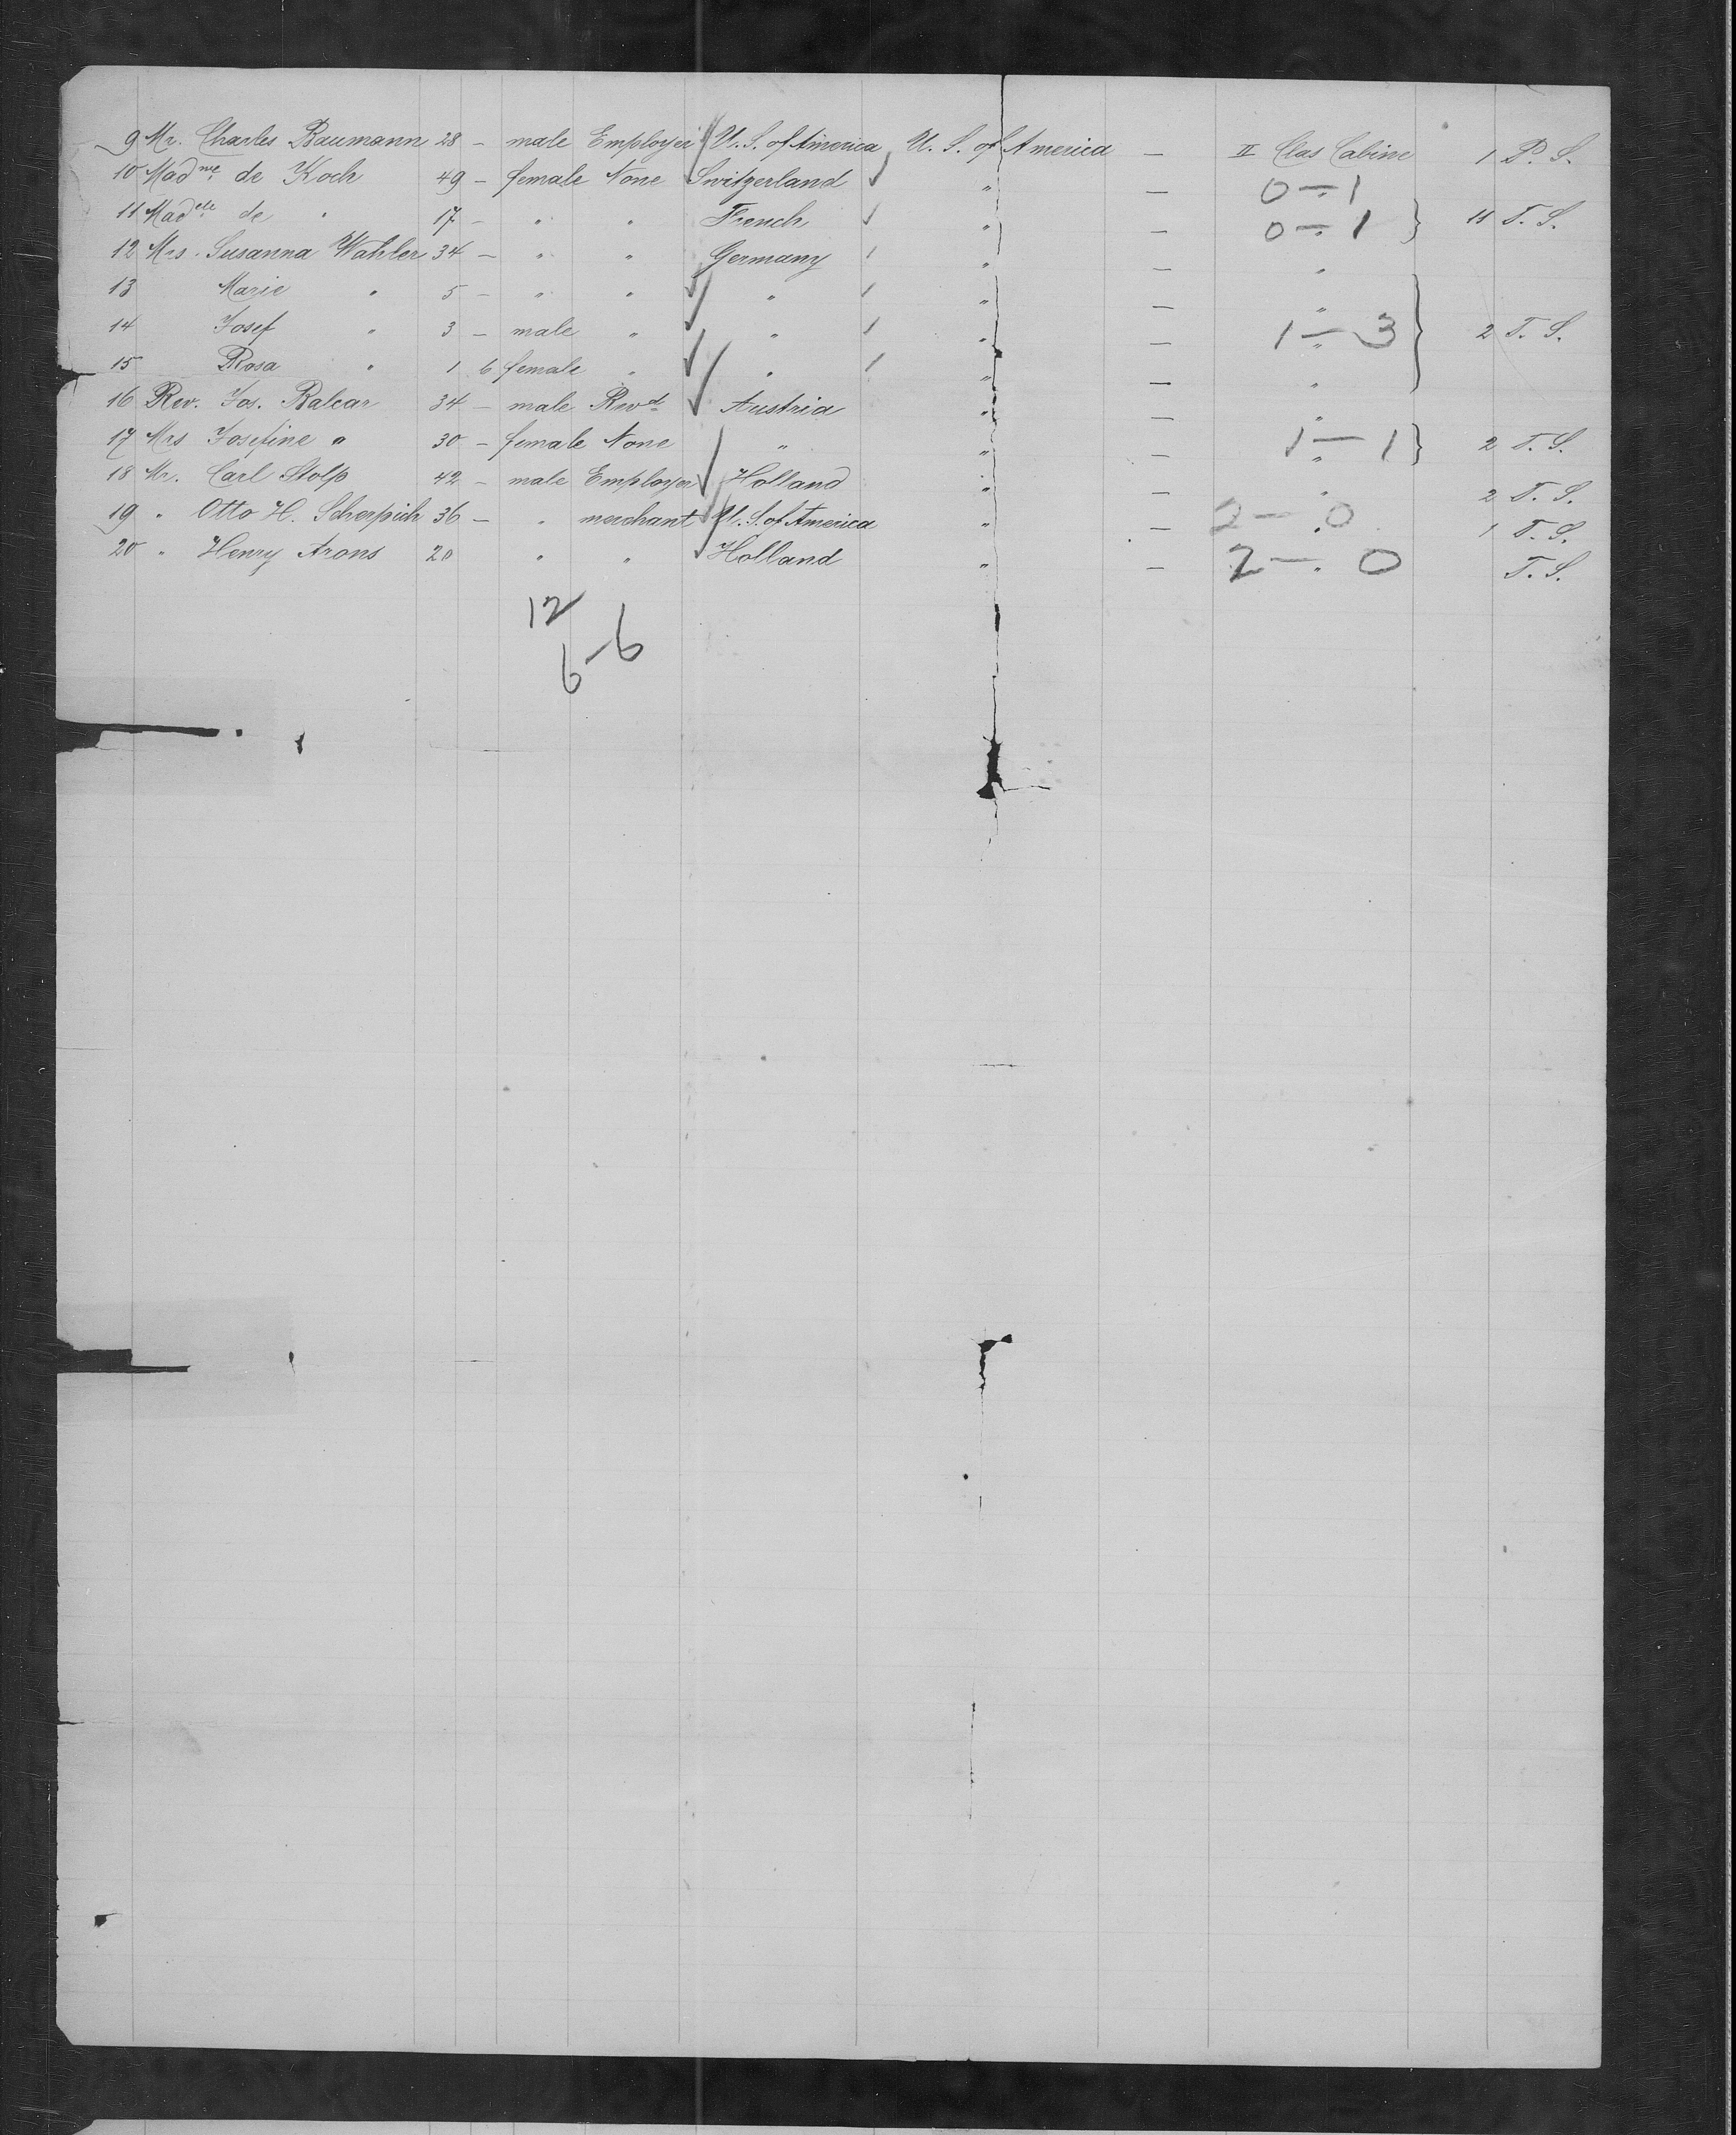 9 Mr. Charles Baumann 28 – male Employer U. S. of America U. S. of America — II Clas Cabine 1 P. S.
10 Madme de Koch 49 – female None Switzerland " — 0 — 1
11 Madelle de " 17 – " " French " — 0 — 1 } 11 T. S.
12 Mrs. Susanna Wahler 34 – " " Germany " — "
13 Marie " 5 – " " " " — "
14 Josef " 3 – male " " " — 1 — 3 } 2 T. S.
15 Rosa " 1 6 female " " " — "
16 Rev. Jos. Balcar 34 – male Revd Austria " — "
17 Mrs Josefine " 30 – female None " " — 1 — 1 } 2 T. S.
18 Mr. Carl Stolp 42 – male Employer Holland " — " 2 T. S.
19 " Otto H. Scherpich 36 – " merchant U. S. of America " — 2 — 0 1 T. S.
20 " Henry Arons 20 " " Holland " — 2 — 0 T. S.
12
6–6